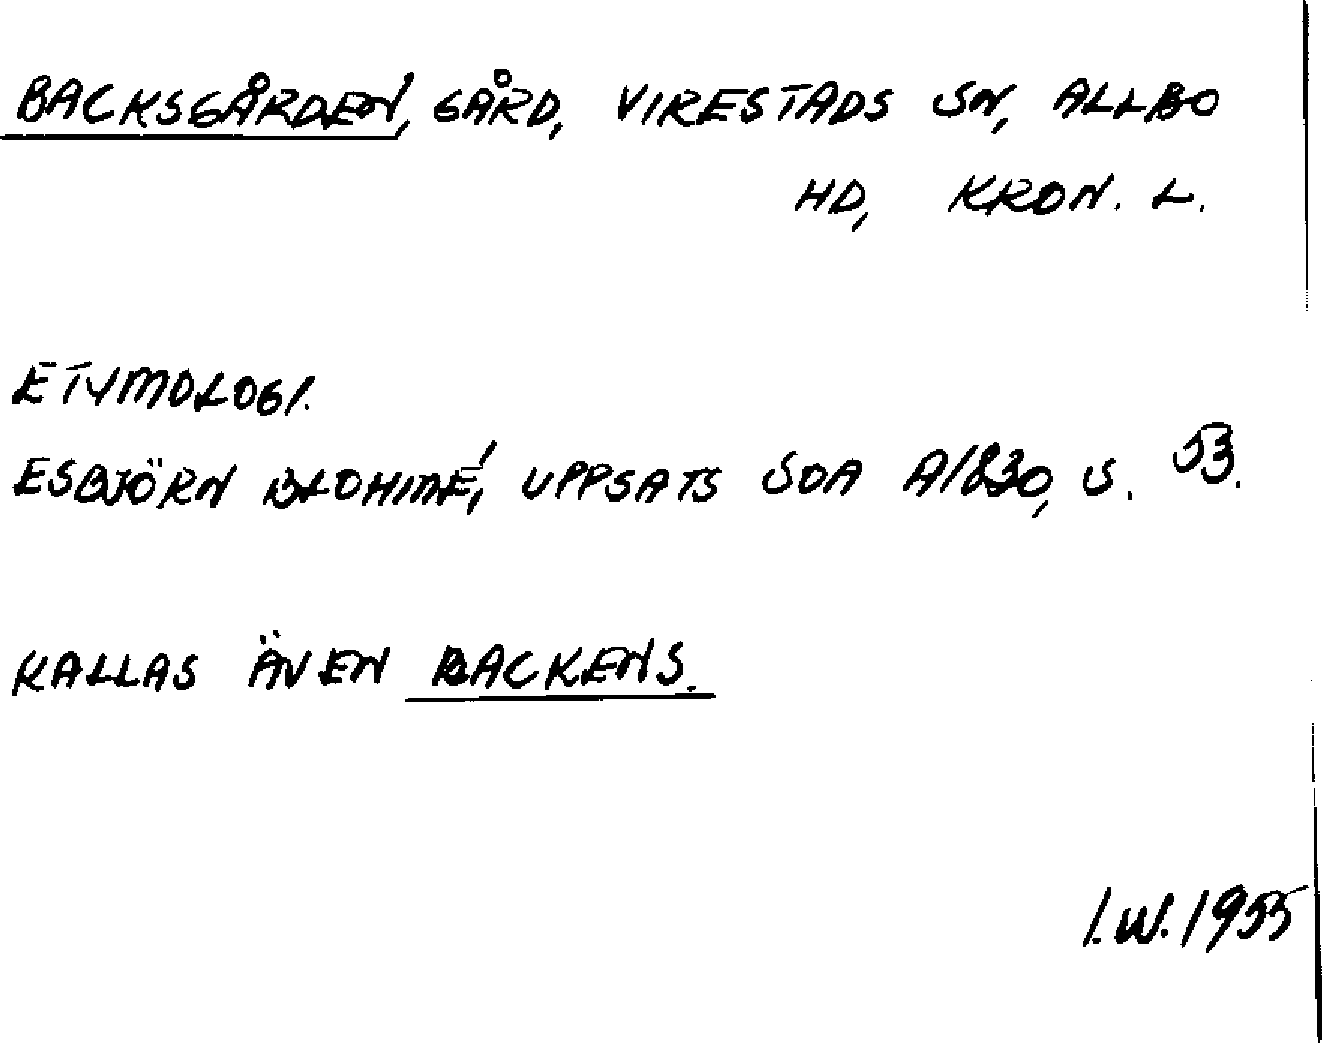 BACKSGÅRDEN, GÅRD, VIRESTADS SN, ALLBO
HD, KRON. L.
ETYMOLOGI.
ESBJÖRN BLOHMÉ, UPPSATS SOA A1830, S. 53.
KALLAS ÄVEN BACKENS.
I.W. 1955